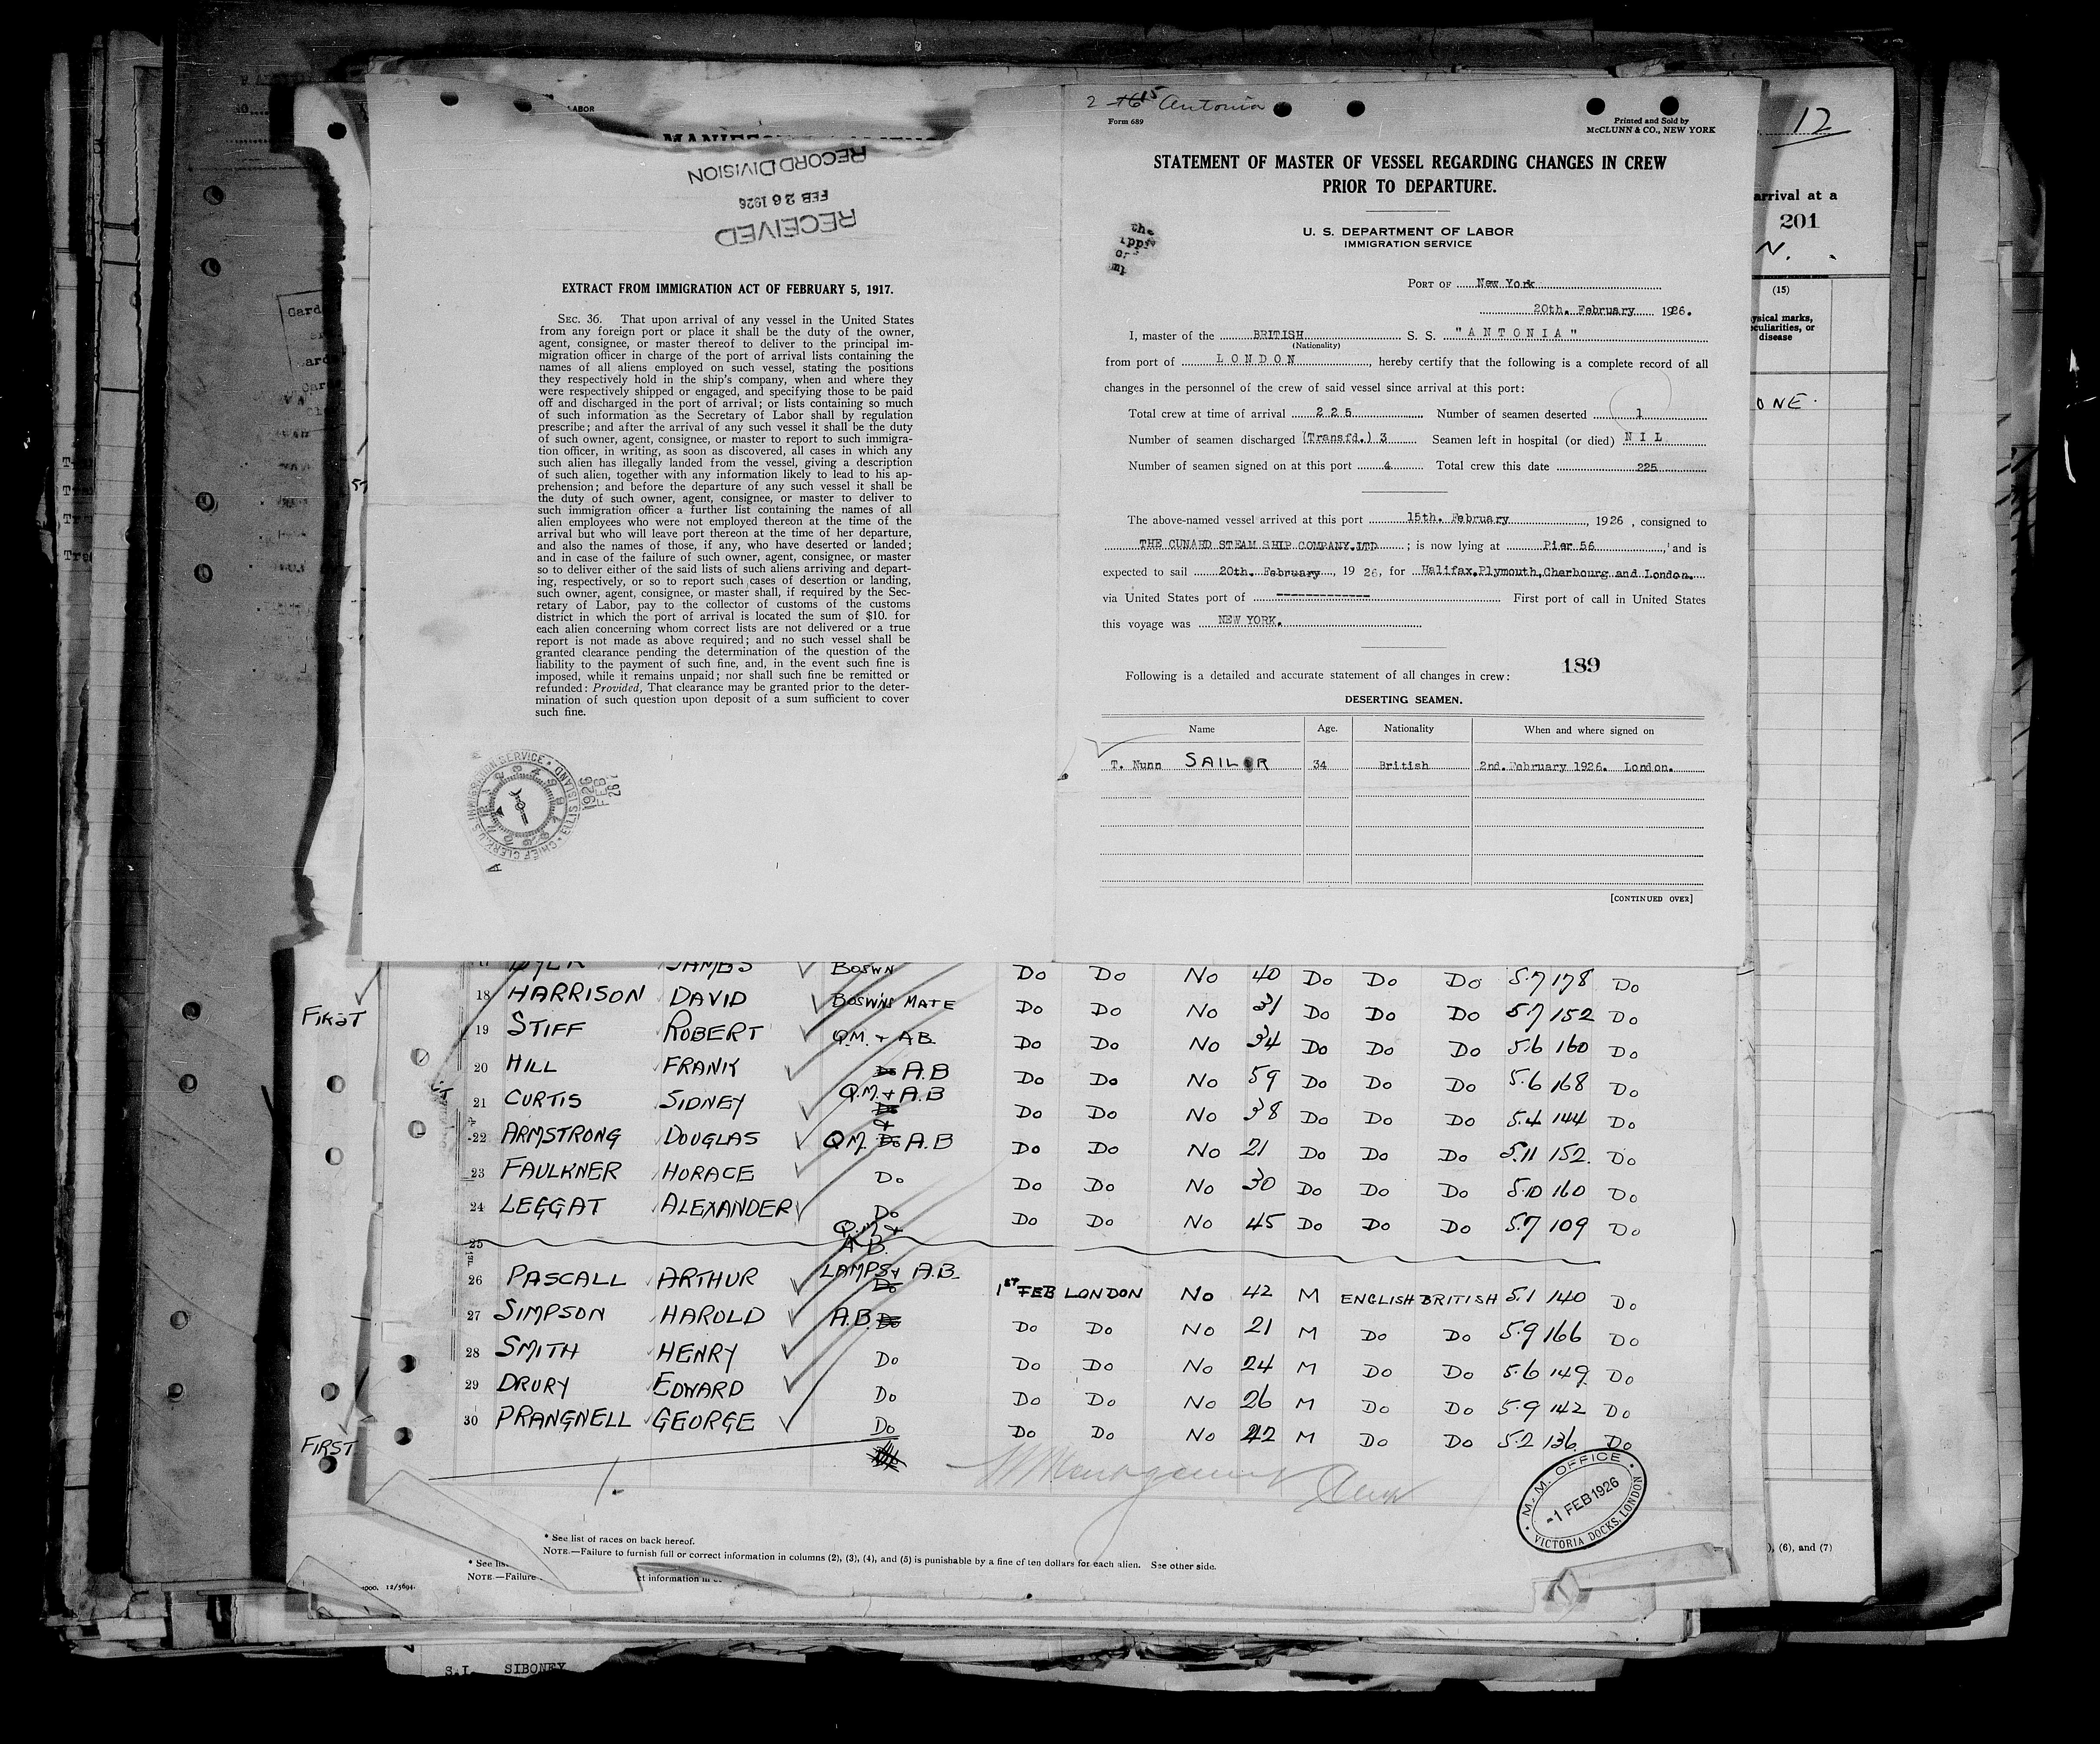 LABOR
RECORD DIVISION
FEB 26 1926
RECEIVED
EXTRACT FROM IMMIGRATION ACT OF FEBRUARY 5, 1917.
SEC. 36. That upon arrival of any vessel in the United States
from any foreign port or place it shall be the duty of the owner,
agent, consignee, or master thereof to deliver to the principal im-
migration officer in charge of the port of arrival lists containing the
names of all aliens employed on such vessel, stating the positions
they respectively hold in the ship's company, when and where they
were respectively shipped or engaged, and specifying those to be paid
off and discharged in the port of arrival; or lists containing so much
of such information as the Secretary of Labor shall by regulation
prescribe; and after the arrival of any such vessel it shall be the duty
of such owner, agent, consignee, or master to report to such immigra-
tion officer, in writing, as soon as discovered, all cases in which any
such alien has illegally landed from the vessel, giving a description
of such alien, together with any information likely to lead to his ap-
prehension; and before the departure of any such vessel it shall be
the duty of such owner, agent, consignee, or master to deliver to
such immigration officer a further list containing the names of all
alien employees who were not employed thereon at the time of the
arrival but who will leave port thereon at the time of her departure,
and also the names of those, if any, who have deserted or landed;
and in case of the failure of such owner, agent, consignee, or master
so to deliver either of the said lists of such aliens arriving and depart-
ing, respectively, or so to report such cases of desertion or landing,
such owner, agent, consignee, or master shall, if required by the Sec-
retary of Labor, pay to the collector of customs of the customs
district in which the port of arrival is located the sum of $10. for
each alien concerning whom correct lists are not delivered or a true
report is not made as above required; and no such vessel shall be
granted clearance pending the determination of the question of the
liability to the payment of such fine, and, in the event such fine is
imposed, while it remains unpaid; nor shall such fine be remitted or
refunded: Provided, That clearance may be granted prior to the deter-
mination of such question upon deposit of a sum sufficient to cover
such fine.
CHIEF CLERK U.S. IMMIGRATION SERVICE • ELLIS ISLAND •
1926 FEB 26
2 15 Antonia
Form 689
Printed and Sold by
McCLUNN & CO., NEW YORK
STATEMENT OF MASTER OF VESSEL REGARDING CHANGES IN CREW
PRIOR TO DEPARTURE.
U. S. DEPARTMENT OF LABOR
IMMIGRATION SERVICE
PORT OF New York
20th. February 1926.
I, master of the BRITISH S. S. "ANTONIA"
(Nationality)
from port of LONDON, hereby certify that the following is a complete record of all
changes in the personnel of the crew of said vessel since arrival at this port:
Total crew at time of arrival 225 Number of seamen deserted 1
Number of seamen discharged (Transfd.) 3 Seamen left in hospital (or died) NIL
Number of seamen signed on at this port 4 Total crew this date 225
The above-named vessel arrived at this port 15th. February, 1926, consigned to
THE CUNARD STEAM SHIP COMPANY.LTD; is now lying at Pier 56, and is
expected to sail 20th. February, 1926, for Halifax,Plymouth,Cherbourg and London.
via United States port of ------------- First port of call in United States
this voyage was NEW YORK.
189
Following is a detailed and accurate statement of all changes in crew:
DESERTING SEAMEN.
Name Age. Nationality When and where signed on
T. Nunn SAILOR 34 British 2nd. February 1926. London.
[CONTINUED OVER]
12
arrival at a
201
N.
(15)
ysical marks,
eculiarities, or
disease
ONE.
JAMES BOSWN Do Do No 40 Do Do Do 5.7 178 Do
18 HARRISON DAVID BOSWNS MATE Do Do No 31 Do Do Do 5.7 152 Do
19 STIFF ROBERT Q.M. + A.B. Do Do No 34 Do Do Do 5.6 160 Do
20 HILL FRANK Do A.B Do Do No 59 Do Do Do 5.6 168 Do
21 CURTIS SIDNEY Q.M. + A.B Do Do Do No 38 Do Do Do 5.4 144 Do
22 ARMSTRONG DOUGLAS Q.M. & Do A.B Do Do No 21 Do Do Do 5.11 152 Do
23 FAULKNER HORACE Do Do Do No 30 Do Do Do 5.10 160 Do
24 LEGGAT ALEXANDER Do Do Do No 45 Do Do Do 5.7 109 Do
25 Q.M + A.B.
26 PASCALL ARTHUR LAMPS + A.B. Do 1ST FEB LONDON No 42 M ENGLISH BRITISH 5.1 140 Do
27 SIMPSON HAROLD A.B. Do Do Do No 21 M Do Do 5.9 166 Do
28 SMITH HENRY Do Do Do No 24 M Do Do 5.6 149 Do
29 DRURY EDWARD Do Do Do No 26 M Do Do 5.9 142 Do
30 PRANGNELL GEORGE Do Do Do No 42 M Do Do 5.2 136 Do
FIRST
FIRST
M. M. OFFICE
-1 FEB 1926
VICTORIA DOCKS, LONDON
* See list of races on back hereof.
NOTE.—Failure to furnish full or correct information in columns (2), (3), (4), and (5) is punishable by a fine of ten dollars for each alien. See other side.
* See lis
NOTE.—Failure
ct information in
000. 12/5694.
), (6), and (7)
S.I. SIBONEY